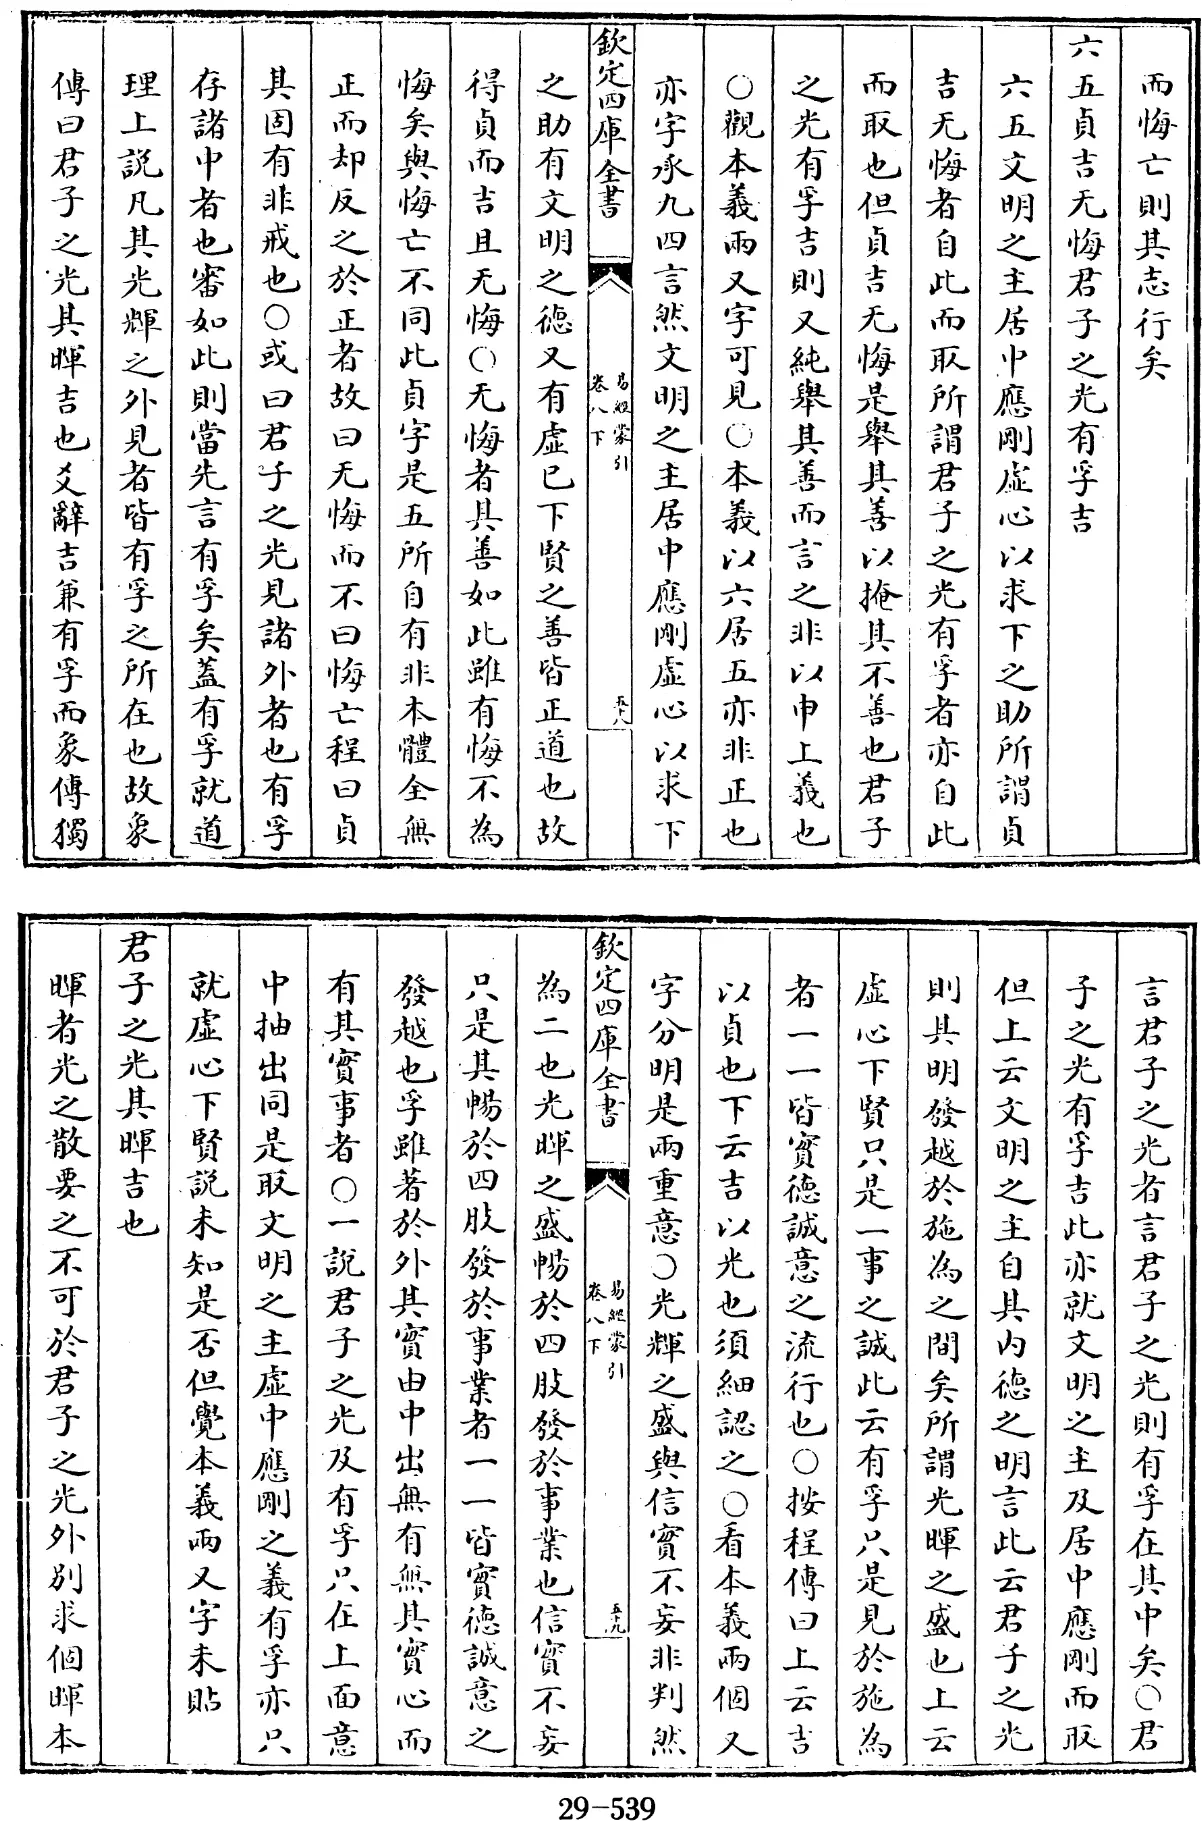 而悔亡則其志行矣
六五貞吉无悔君子之光有孚吉
六五文明之主居中應剛虛心以求下之助所謂貞
吉无悔者自此而取所謂君子之光有孚者亦自此
而取也但貞吉无悔是舉其善以掩其不善也君子
之光有孚吉則又純舉其善而言之非以申上義也
○觀本義兩又字可見○本義以六居五亦非正也
亦字承九四言然文明之主居中應剛虛心以求下
欽定四庫全書
易經蒙引
卷八下
五十八
之助有文明之德又有虛已下賢之善皆正道也故
得貞而吉且无悔○无悔者其善如此雖有悔不為
悔矣與悔亡不同此貞字是五所自有非本體全無
正而却反之於正者故曰无悔而不曰悔亡程曰貞
其固有非戒也○或曰君子之光見諸外者也有孚
存諸中者也審如此則當先言有孚矣蓋有孚就道
理上説凡其光輝之外見者皆有孚之所在也故象
傳曰君子之光其暉吉也爻辭吉兼有孚而象傳獨
言君子之光者言君子之光則有孚在其中矣○君
子之光有孚吉此亦就文明之主及居中應剛而取
但上云文明之主自其内德之明言此云君子之光
則其明發越於施為之間矣所謂光暉之盛也上云
虛心下賢只是一事之誠此云有孚只是見於施為
者一一皆實德誠意之流行也○按程傳曰上云吉
以貞也下云吉以光也須細認之○看本義兩個又
字分明是兩重意○光輝之盛與信實不妄非判然
欽定四庫全書
易經蒙引
卷八下
五十九
為二也光暉之盛暢於四肢發於事業也信實不妄
只是其暢於四肢發於事業者一一皆實德誠意之
發越也孚雖著於外其實由中出無有無其實心而
有其實事者○一説君子之光及有孚只在上面意
中抽出同是取文明之主虛中應剛之義有孚亦只
就虛心下賢説未知是否但覺本義兩又字未貼
君子之光其暉吉也
暉者光之散要之不可於君子之光外別求個暉本
29-539